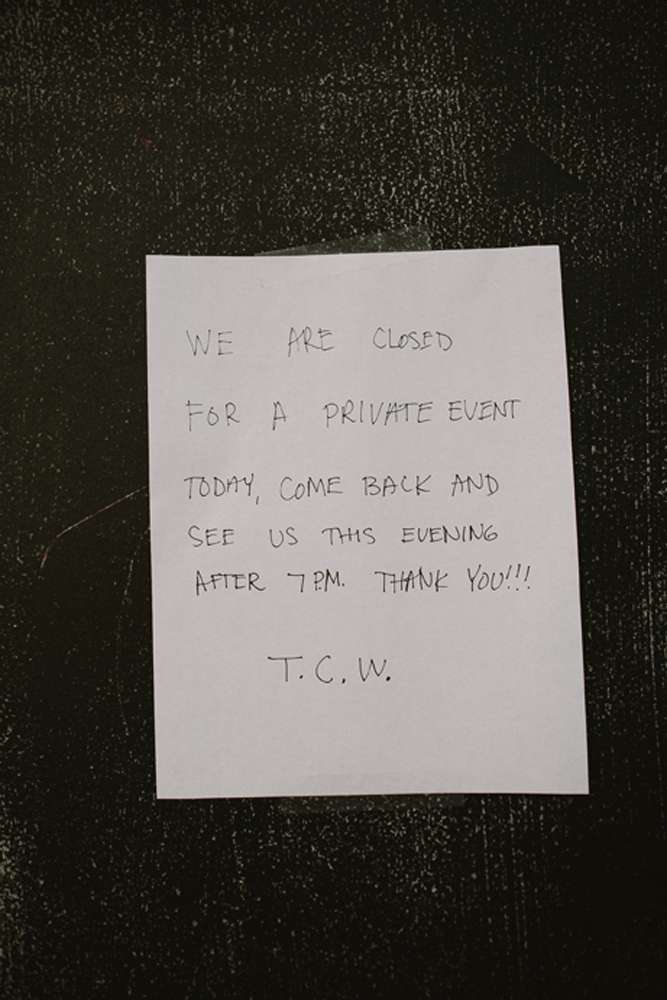 WE ARE CLOSED
FOR A PRIVATE EVENT
TODAY, COME BACK AND
SEE US THIS EVENING
AFTER 7 P.M. THANK YOU!!!
T.C.W.